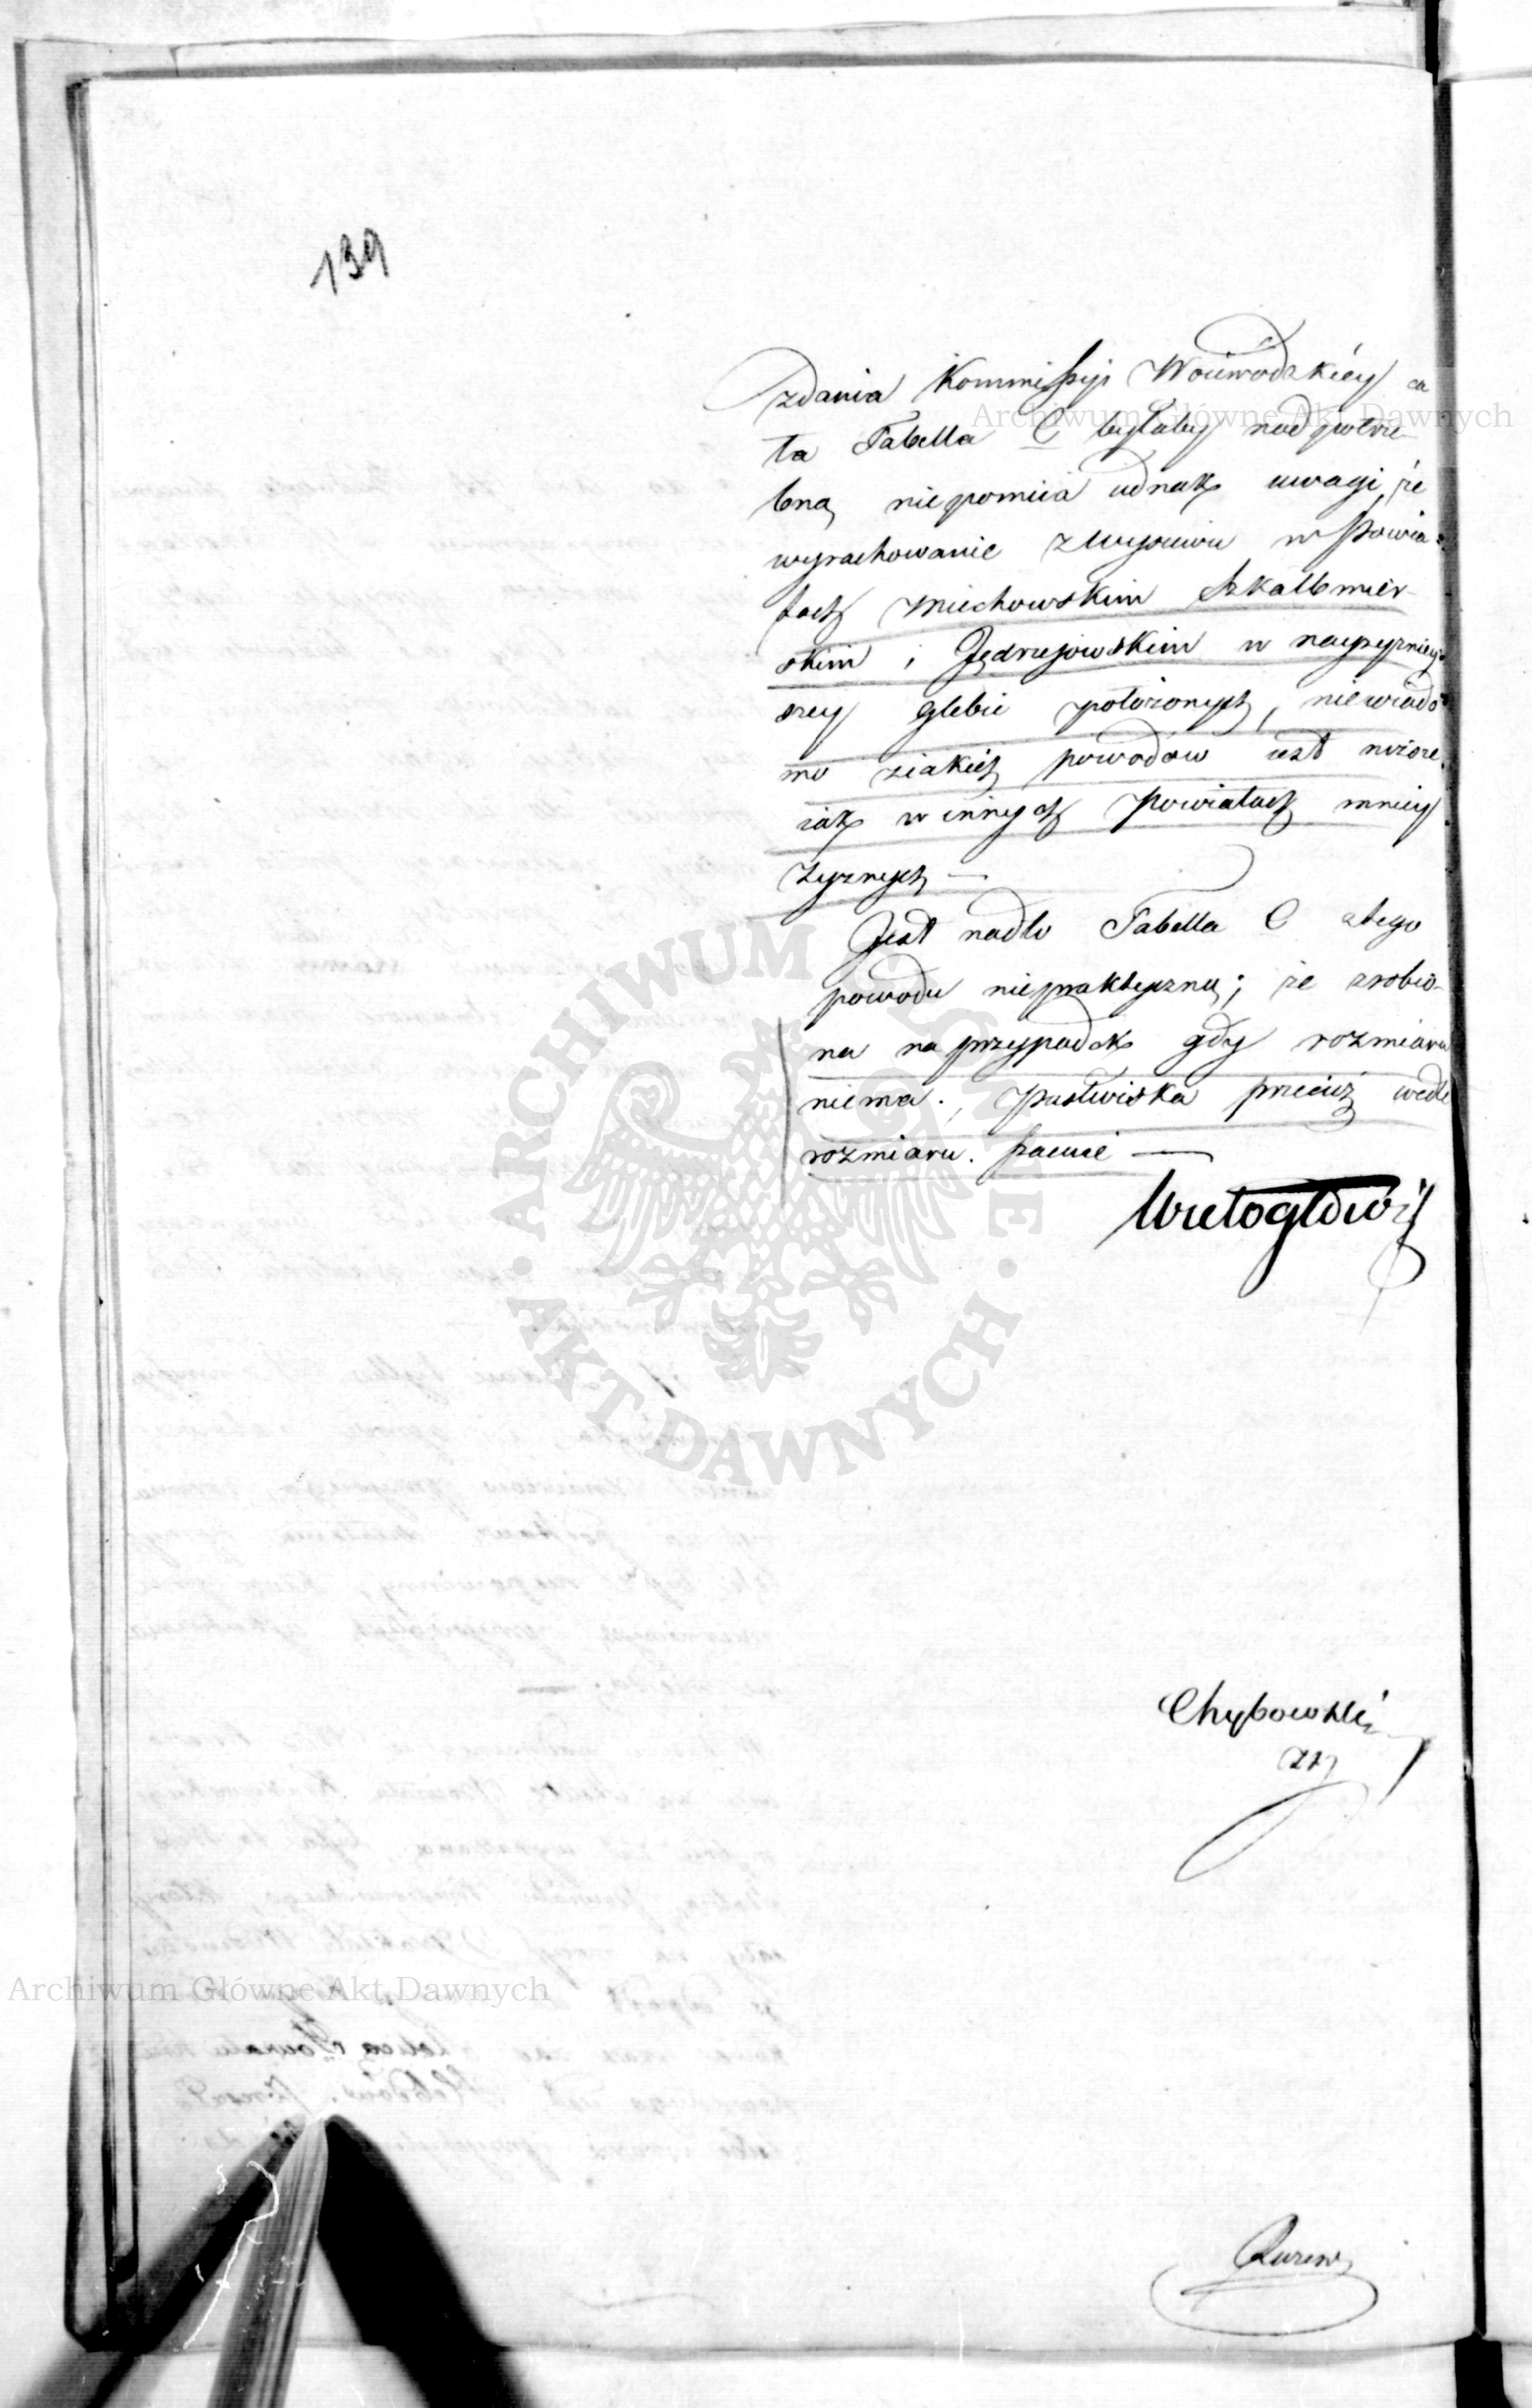 139
zdania Kommissyi Woiewodzkiéy ca
ta Tabella C bylaby nadpotrze-
bną niepomiia iednak uwagi, że
wyrachowanie z Wysiewu w Powia-
tach Miechowskim Szkalbmier-
skim i Jędrzejowskim w nayżyzniey-
szey glebie położonych, niewiado-
mo ziakich powodów iest niższe
iak w innych Powiatach mniey
żyznych —
Jest nadto Tabella C ztego
powodu niepraktyczną; że zrobio-
na na przypadek gdy rozmiaru
niema., Pastwiska przecież wedle
rozmiaru. szacuie —
Wielogłowsky
Chybowski
Archiwum Główne Akt Dawnych
ARCHIWUM GŁÓWNE
AKT DAWNYCH
Archiwum Główne Akt Dawnych